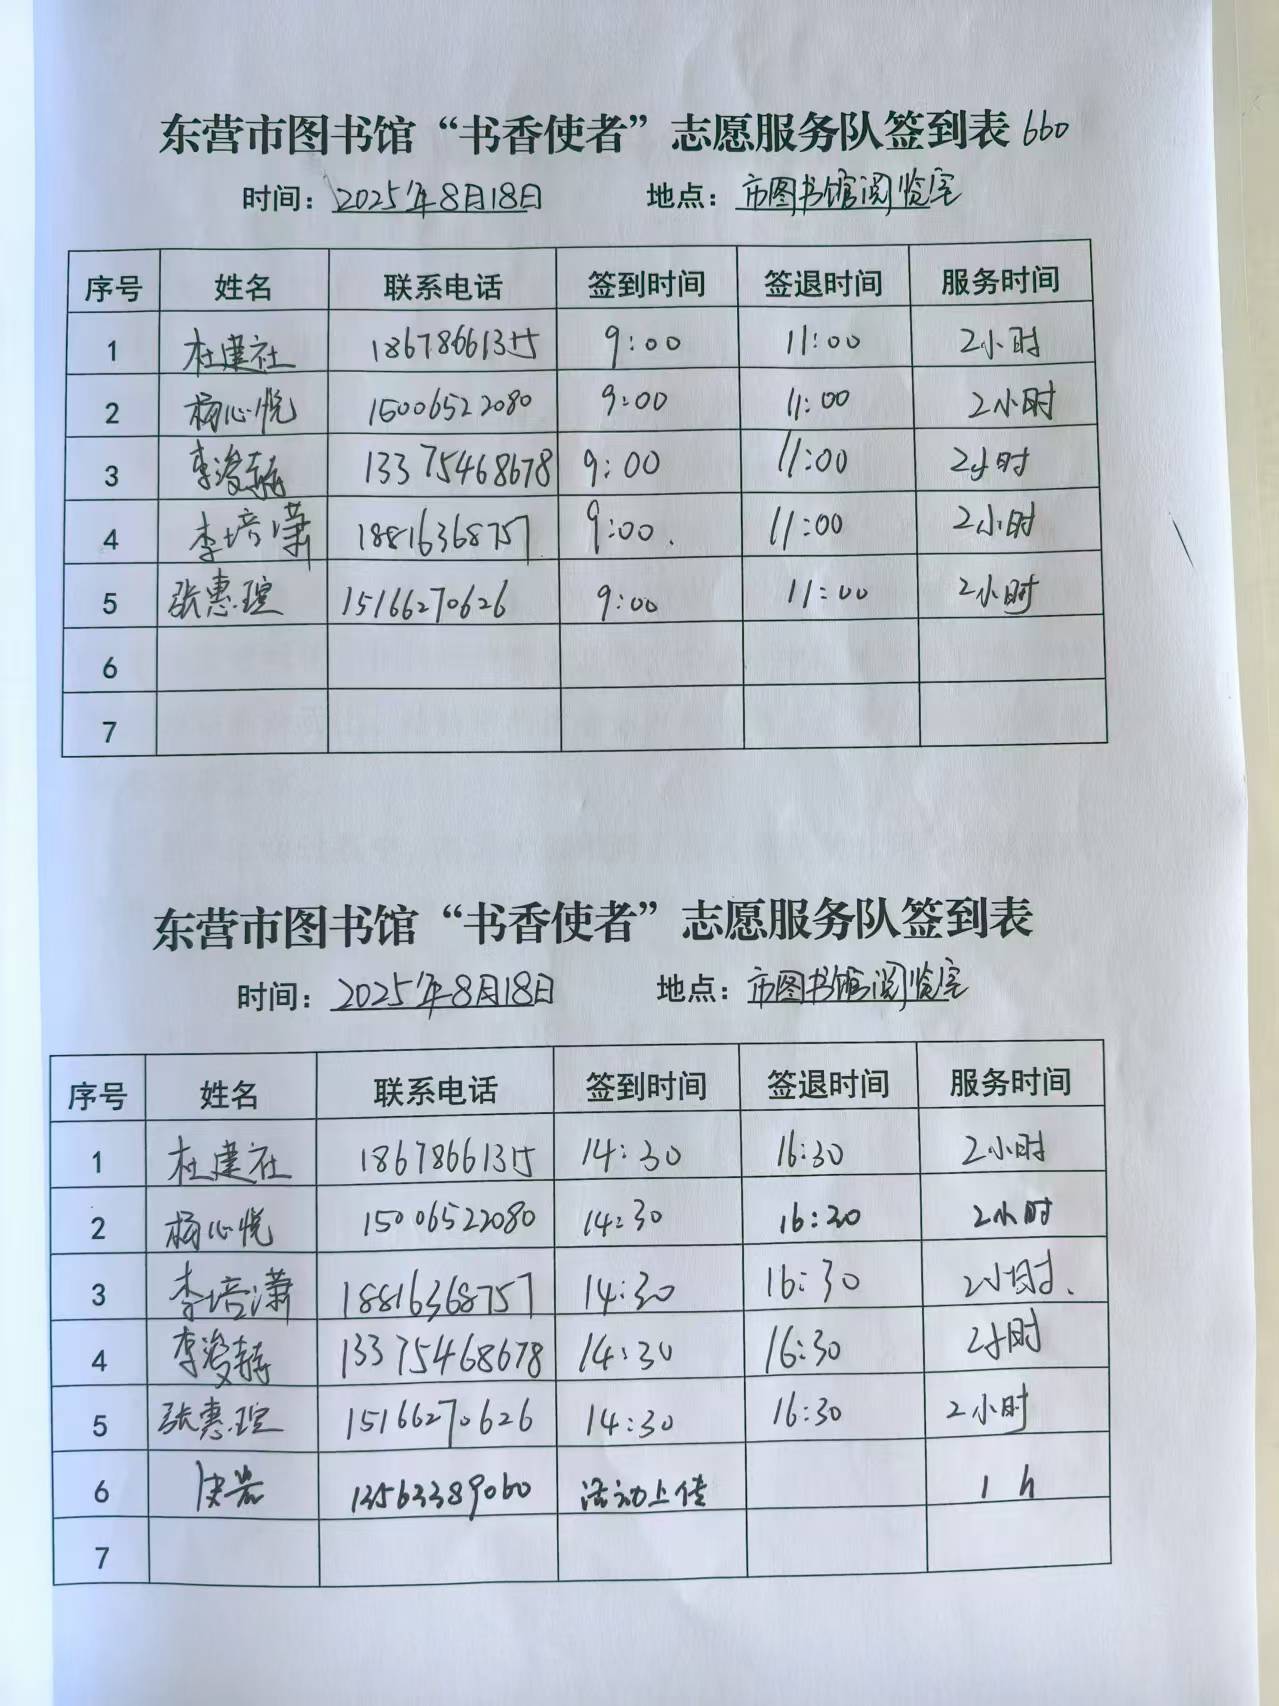 东营市图书馆“书香使者”志愿服务队签到表 660
时间：2025年8月18日 地点：市图书馆阅览室
序号 姓名 联系电话 签到时间 签退时间 服务时间
1 杜建社 18678661315 9:00 11:00 2小时
2 杨心悦 15006522080 9:00 11:00 2小时
3 李浚赫 13375468678 9:00 11:00 2小时
4 李培潇 18816368757 9:00. 11:00 2小时
5 张惠瑄 15166270626 9:00 11:00 2小时
6
7
东营市图书馆“书香使者”志愿服务队签到表
时间：2025年8月18日 地点：市图书馆阅览室
序号 姓名 联系电话 签到时间 签退时间 服务时间
1 杜建社 18678661315 14:30 16:30 2小时
2 杨心悦 15006522080 14:30 16:30 2小时
3 李培潇 18816368757 14:30 16:30 2小时.
4 李浚赫 13375468678 14:30 16:30 2小时
5 张惠瑄 15166270626 14:30 16:30 2小时
6 13563389060 活动上传 1 h
7